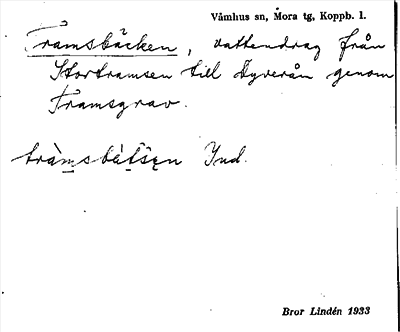 Våmhus sn, Mora tg, Koppb. l.
Tramsbäcken, vattendrag från
Stortramsen till Dyverån genom
Tramsgrav.
Ind.
Bror Lindén 1933